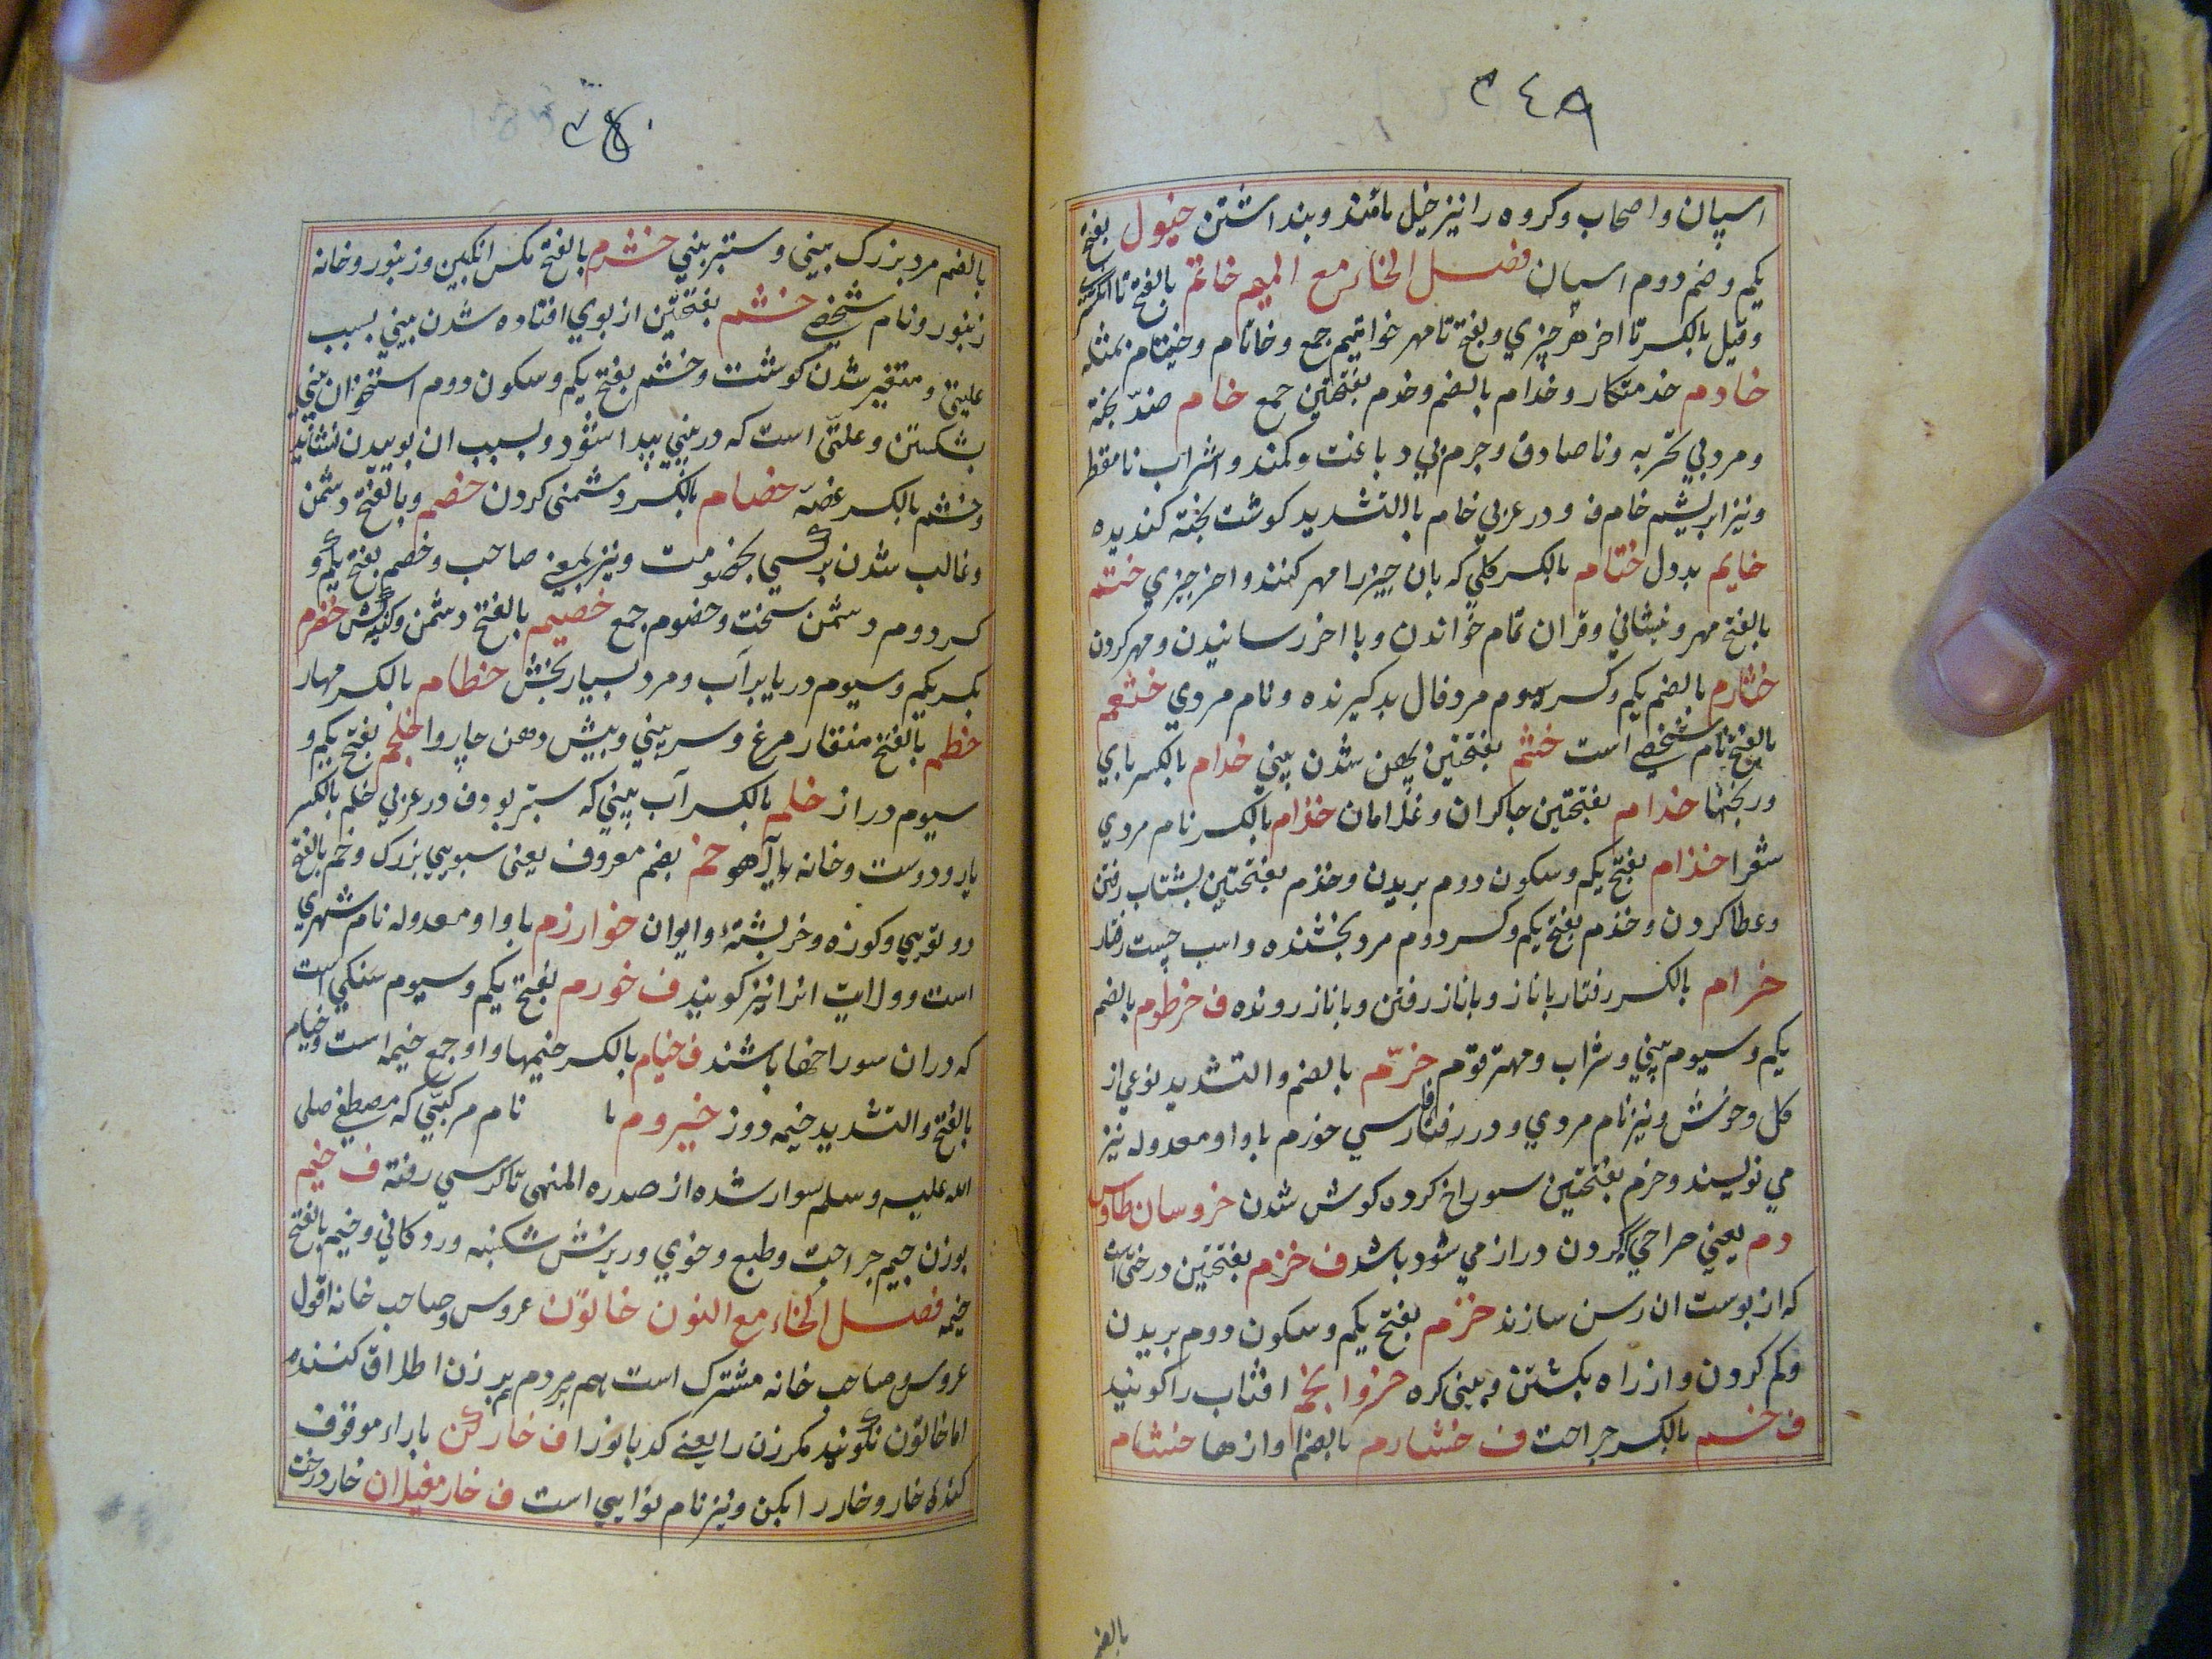 ٣٤٩
اسپان و اصحاب و کروه را نیز خیل نامند و بنداشتن خیول بفتح
یکم و ضم دوم اسپان فصل الخاء مع المیم خاتم بالفتح تا انکشتری
و قیل بالکسر تا اخر هر چیزی و بفتح تا مهر خواتیم جمع و خاتام و خیتام بمثله
خادم خدمتکار و خدام بالضم و خدم بفتحتین جمع خام ضد پخته
و مرد بی تجربه و ناصادق و چرم بی دباغت و کمند و شراب نامقطر
و نیز ابریشیم خام ف و در عربی خام باالتشدید کوشت پخته کندیده
خایم بددل ختام بالکسر کلی که بان چیز را مهر کنند و اخر چیزی ختم
بالفتح مهر و نبشانی و قران تمام خواندن و با اخر رسانیدن و مهر کردن
خثارم بالضم یکم و کسر سوم مرد فال بد کیرنده و نام مردی خثعم
بالفتح نام شخصی است خثم بفتحتین پهن شدن بینی خدام بالکسر بای
ورنجنها خدام بفتحتین چاکران و غلامان خذام بالکسر نام مردی
شعرا خذام بفتح یکم و سکون دوم بریدن و خذم بفتحتین بشتاب رفتن
و عطا کردن و خذم بفتح یکم و کسر دوم مرد بخشنده و اسب چست رفتار
خرام بالکسر رفتار باناز و باناز رفتن و باناز رونده ف خرطوم بالضم
یکم و سیوم بینی و شراب و مهتر قوم خرّم بالضم والتشدید نوعی از
کل و خوش و نیز نام مردی و در فارسی خورم باواو معدوله نیز
می نویسند و خرم بفتحتین سوراخ کرده کوش شدن خروسان طاوس
دم یعنی صراحی کردن دراز می شود باشد ف خزم بفتحتین درختی است
که از پوست ان رسن سازند خزم بفتح یکم و سکون دوم بریدن
و کم کردن و از راه بکشتن و بینی کره خزوا بخم افتاب را کویند
ف خسم بالکسر جراحت ف خشارم بالضم اوازها خشام
بالضم
٣٥٠
بالضم مرد بزرک بینی و ستبر بینی خشرم بالفتح مکس انکبین و زنبور و خانه
زنبور و نام شخصی خشم بفتحتین از بوی افتاده شدن بینی بسبب
علتی و متغیر شدن کوشت و خشم بفتح یکم و سکون دوم استخوان بینی
بشکستن و علتی است که در بینی پیدا شود و بسبب ان بوییدن نتواند
و خشم بالکسر غصّه خصام بالکسر دشمنی کردن خصم و بالفتح دشمن
و غالب شدن بر کسی بخصومت و نیز بمعنی صاحب و خصم بفتح یکم و
کسر دوم دشمن سخت و خصوم جمع خصیم بالفتح دشمن و کینه کش خضرم
بکسر یکم و سیوم دریا پر آب و مرد بسیار بخش خطام بالکسر مهار
خطم بالفتح منقار مرغ و سر بینی و پیش دهن چاروا خلجم بفتح یکم و
سیوم دراز خلم بالکسر آب بینی که ستبر بود ف در عربی خلم بالکسر
یار و دوست و خانه آهو خم بضم معروف یعنی سبویی بزرک و خم بالفتح
دو تویی و کوزه و خر پشته و ایوان خوارزم باواو معدوله نام شهری
است و ولایت انرا نیز کویند ف خورم بفتح یکم و سیوم سنکی است
که در ان سوراخها باشند ف خیام بالکسر خیمها و او جمع خیمه است و خیام
بالفتح والتشدید خیمه دوز خیروم با نام مرکبی که مصطفی صلی
الله علیه وسلم سوار شده از صدره المنهی تا کرسی رفته ف خیم
بوزن جیم جراحت و طبع و خوی و ریزش شکنبه و رودکانی و خیم بالفتح
خیمه فصل الخاء مع النون خاتون عروس و صاحب خانه اقول
عروس و صاحب خانه مشترک است هم بر مردم بر زن اطلاق کنند
اما خاتون نکویند مکر زن را یعنی کدبانو را ف خارکن باراء موقوف
کننده خار و خار را بکن و نیز نام نوایی است ف خار مغیلان خار درخت